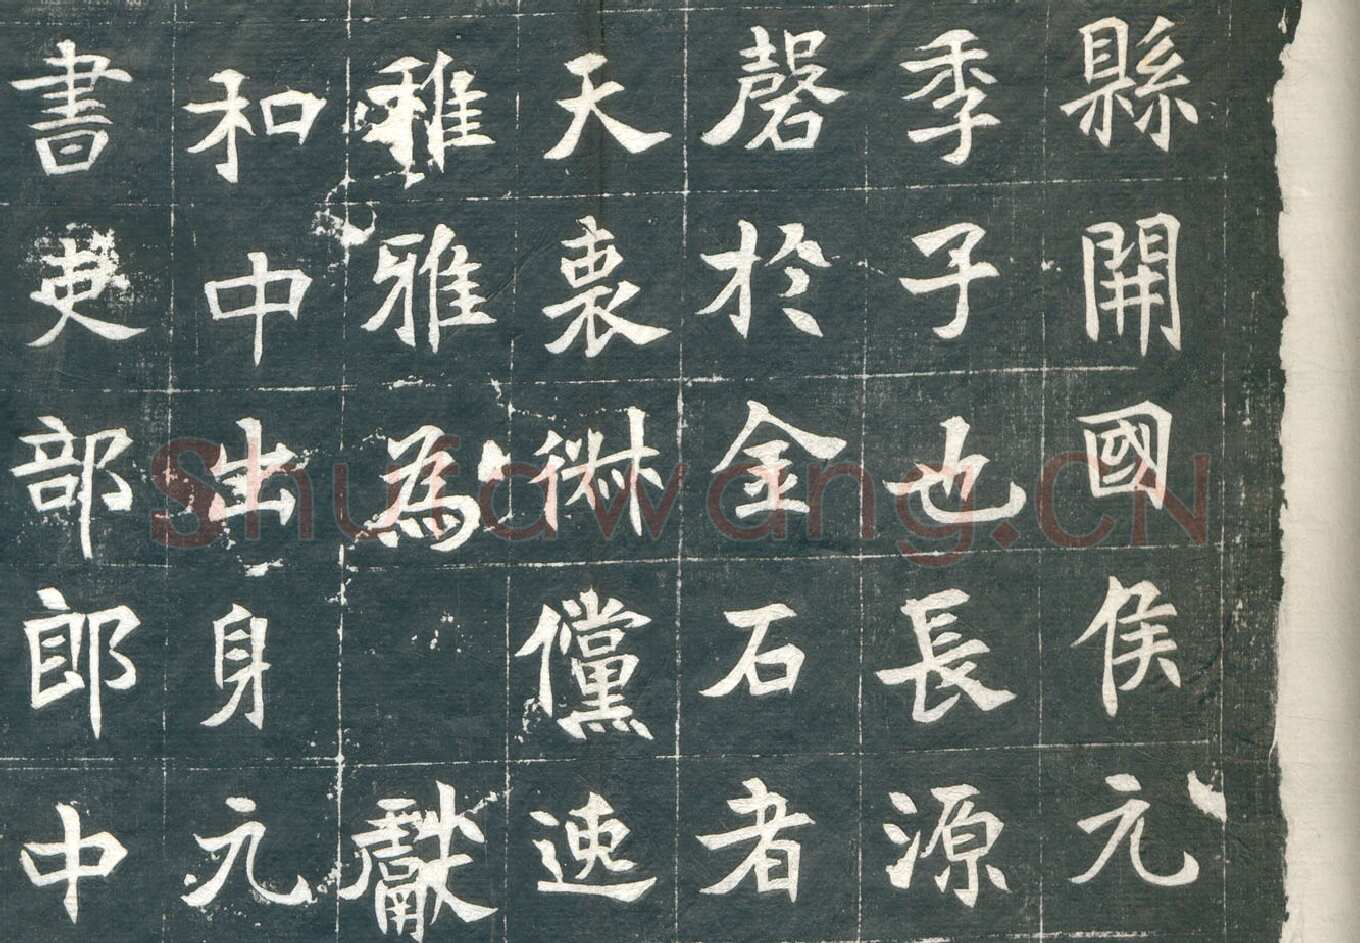 縣開國侯元
季子也長源
磬於金石者
天衷俶儻速
稚雅為獻
和中出身元
書吏部郎中
Shufawang.CN